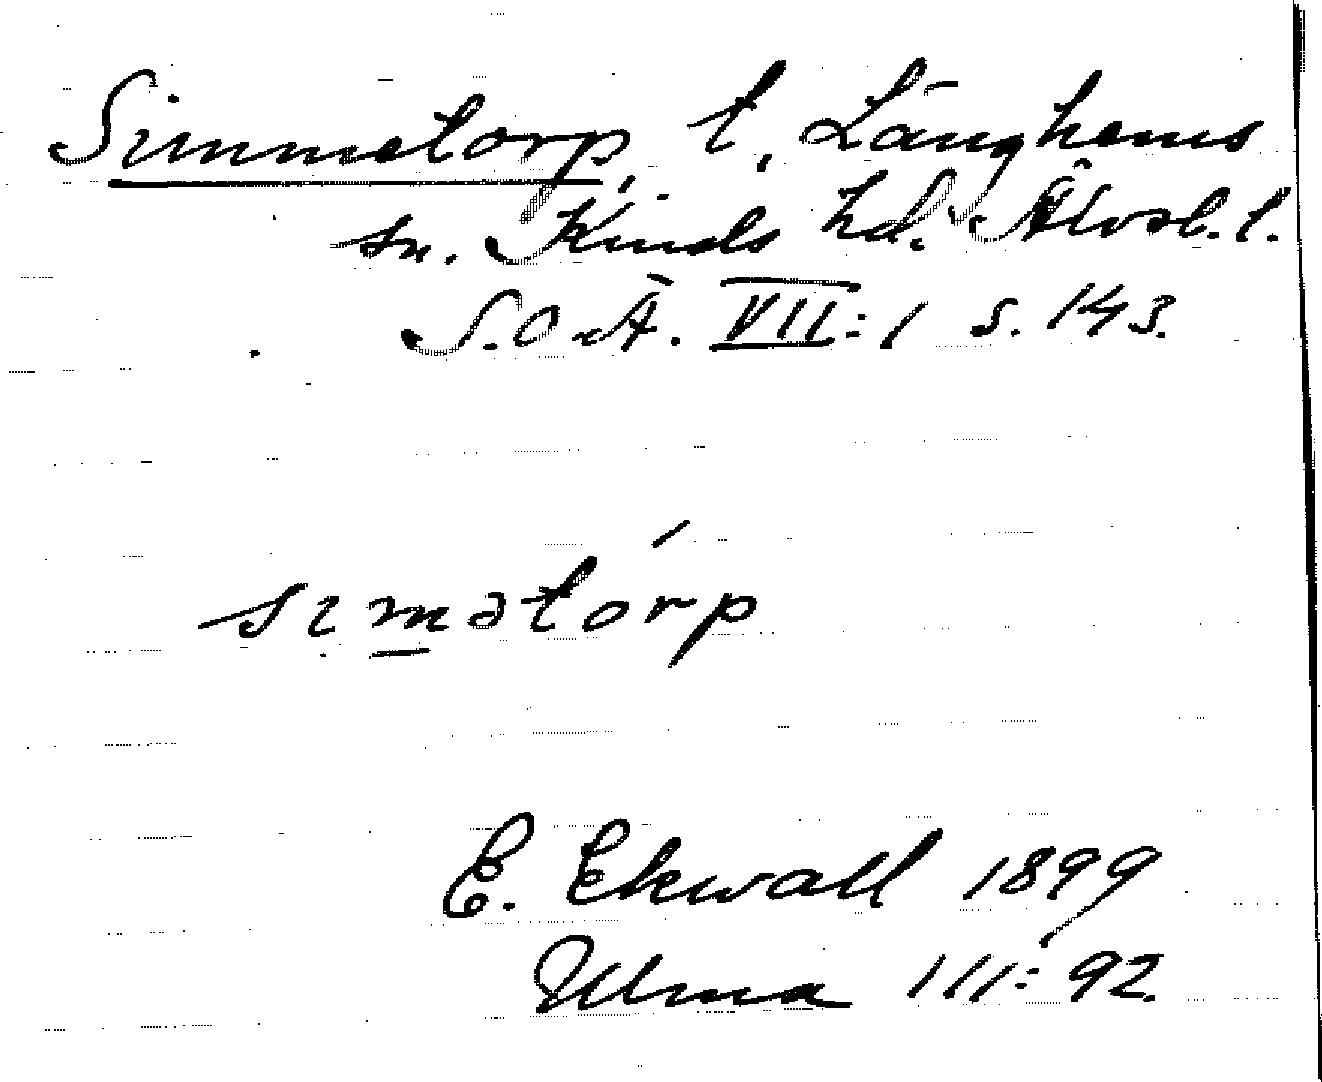 Simmetorp, t, Länghems
sn. Kinds hd. Älvsb. l.
S.O.Ä. VII:1 s. 143.
sımətórp
E. Ekwall 1899
Ulma 111:92.